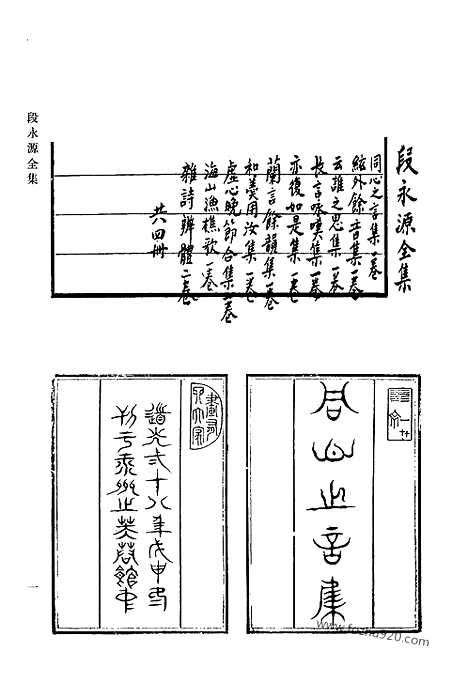 段永源全集
同心之言集一卷
絃外餘音集一卷
云誰之思集一卷
長言咏嘆集一卷
亦復如是集一卷
蘭言餘韻集一卷
和羹用汝集一卷
虛心晚節合集一卷
海山漁樵歌一卷
雜詩辨體二卷
共四冊
段永源全集
同心之言集
道光弍十八年戊申
刊于
之芙蓉館
一
www.fozhu920.com